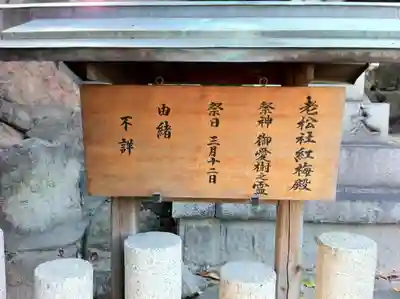 老松社紅梅殿
祭神 御愛樹之霊
祭日 三月十二日
由緒
不詳